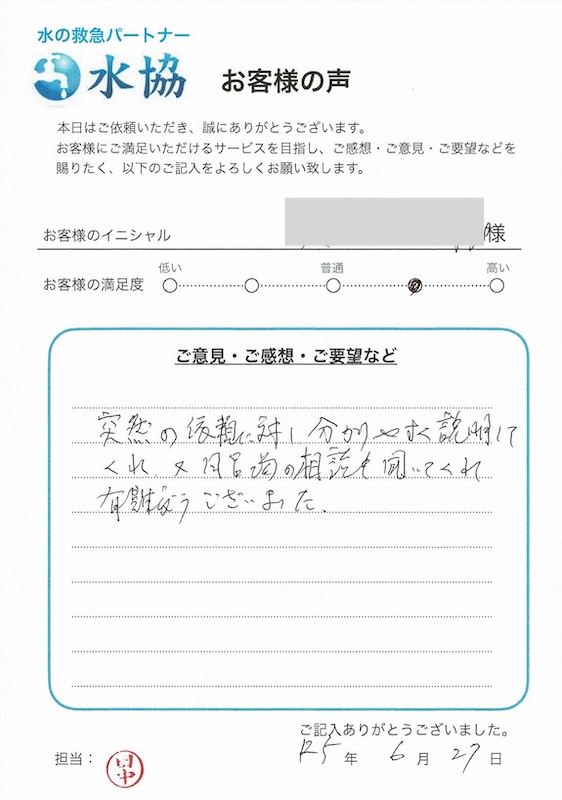 水の救急パートナー
水協 お客様の声
本日はご依頼いただき、誠にありがとうございます。
お客様にご満足いただけるサービスを目指し、ご感想・ご意見・ご要望などを
賜りたく、以下のご記入をよろしくお願い致します。
お客様のイニシャル 様
低い 普通 高い
お客様の満足度
ご意見・ご感想・ご要望など
突然の依頼に対し分かりやすく説明して
くれ、又 の相談も聞いてくれ
有難うございました。
ご記入ありがとうございました。
担当： 田中 R5 年 6 月 27 日